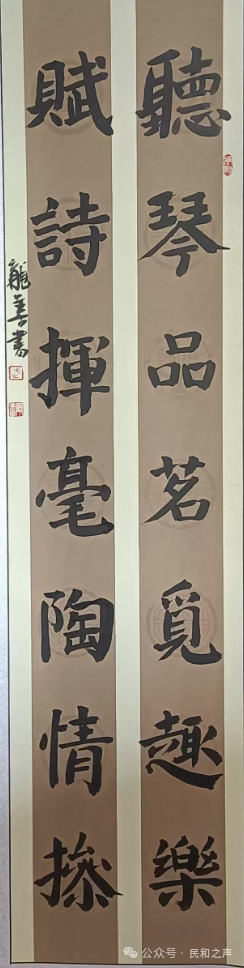 聽琴品茗覓趣樂
賦詩揮毫陶情操
善書
公众号 · 民和之声